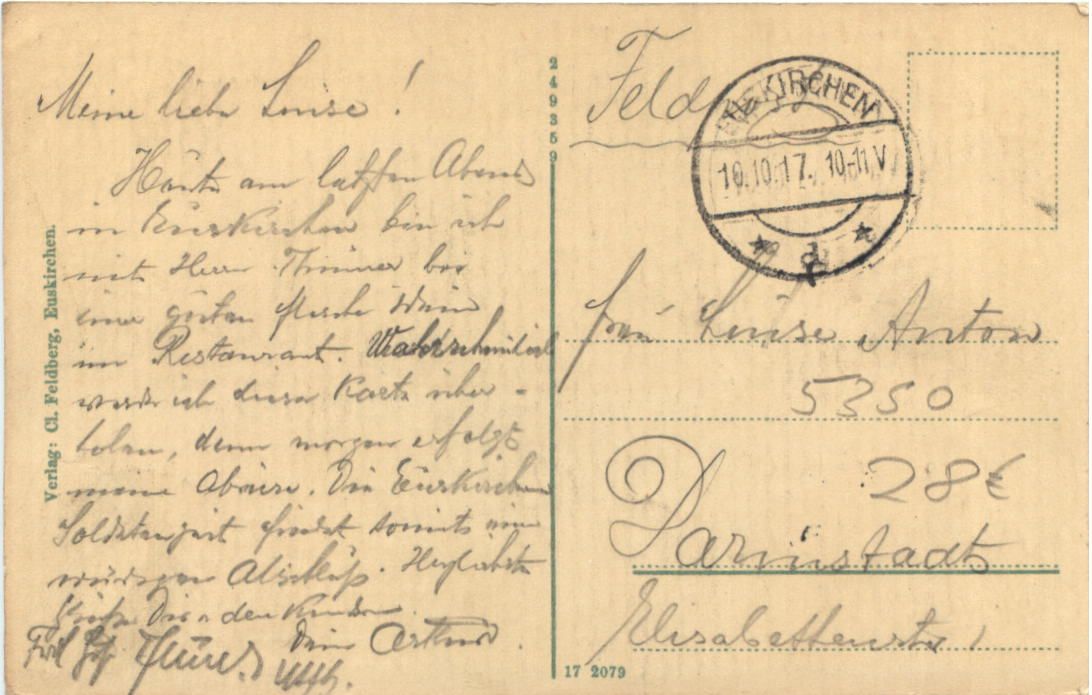 Meine liebe Louise!
Heute am letzten Abend
in Euskirchen bin ich
mit Herrn bei
einer guten Flasche Wein
im Restaurant. Wahrscheinlich
werde ich diese Karte über-
holen, denn morgen erfolgt
meine Abreise. Die Euskirchener
Soldatenzeit findet somit einen
würdigen Abschluß. Herzlichste
Grüße Dir u. den Kindern
Dein Arthur.
Verlag: Cl. Feldberg, Euskirchen.
249359
Feldp
EUSKIRCHEN
10.10.17. 10-11 V
Frau Louise Anton
5350
28€
Darmstadt
Elisabethenstr.
17 2079